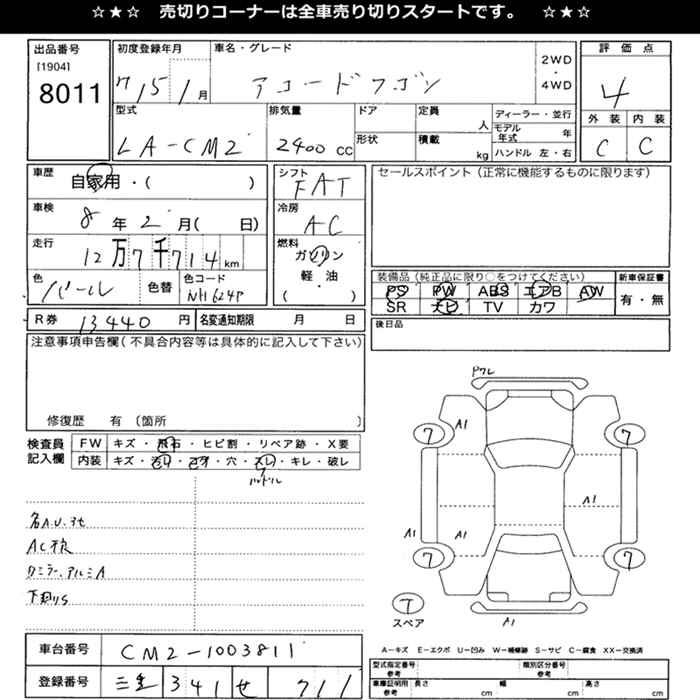 ☆★☆ 売切りコーナーは全車売り切りスタートです。 ☆★☆
出品番号
[1904]
8011
初度登録年月
H15 1 月
車名・グレード
アコードワゴン
2WD
・
4WD
評価点
4
外装 内装
C C
型式
LA-CM2
排気量
2400 CC
ドア
形状
定員 人
積載 kg
ディーラー・並行
モデル年式 年
ハンドル 左・右
車歴
自家用・( )
シフト
FAT
セールスポイント(正常に機能するものに限ります)
車検
8年 2月( 日)
冷房
AC
走行
12万7千714 km
燃料
ガソリン
軽・油
( )
色
パール
色替
色コード
NH624P
装備品(純正品に限り○をつけてください)
PS PW ABS エアB AW
SR ナビ TV カワ
新車保証書
有・無
R券 13440 円
名変通知期限 月 日
後日品
注意事項申告欄(不具合内容等は具体的に記入して下さい)
修復歴 有(箇所 )
検査員記入欄
FW キズ・飛石・ヒビ割・リペア跡・X要
内装 キズ・汚れ・コゲ・穴・スレ・キレ・破レ
ハンドル
各A.U.ヨセ
下廻りS
Pワレ
A1
7
7
A1
A1
A1
7
7
T
スペア
A1
A-キズ E-エクボ U-凹み W-補修跡 S-サビ C-腐食 XX-交換済
車台番号 CM2-1003811
登録番号 三重 341 せ 711
型式指定番号 参考
類別区分番号 参考
車庫証明用 参考
長さ cm
幅 cm
高さ cm